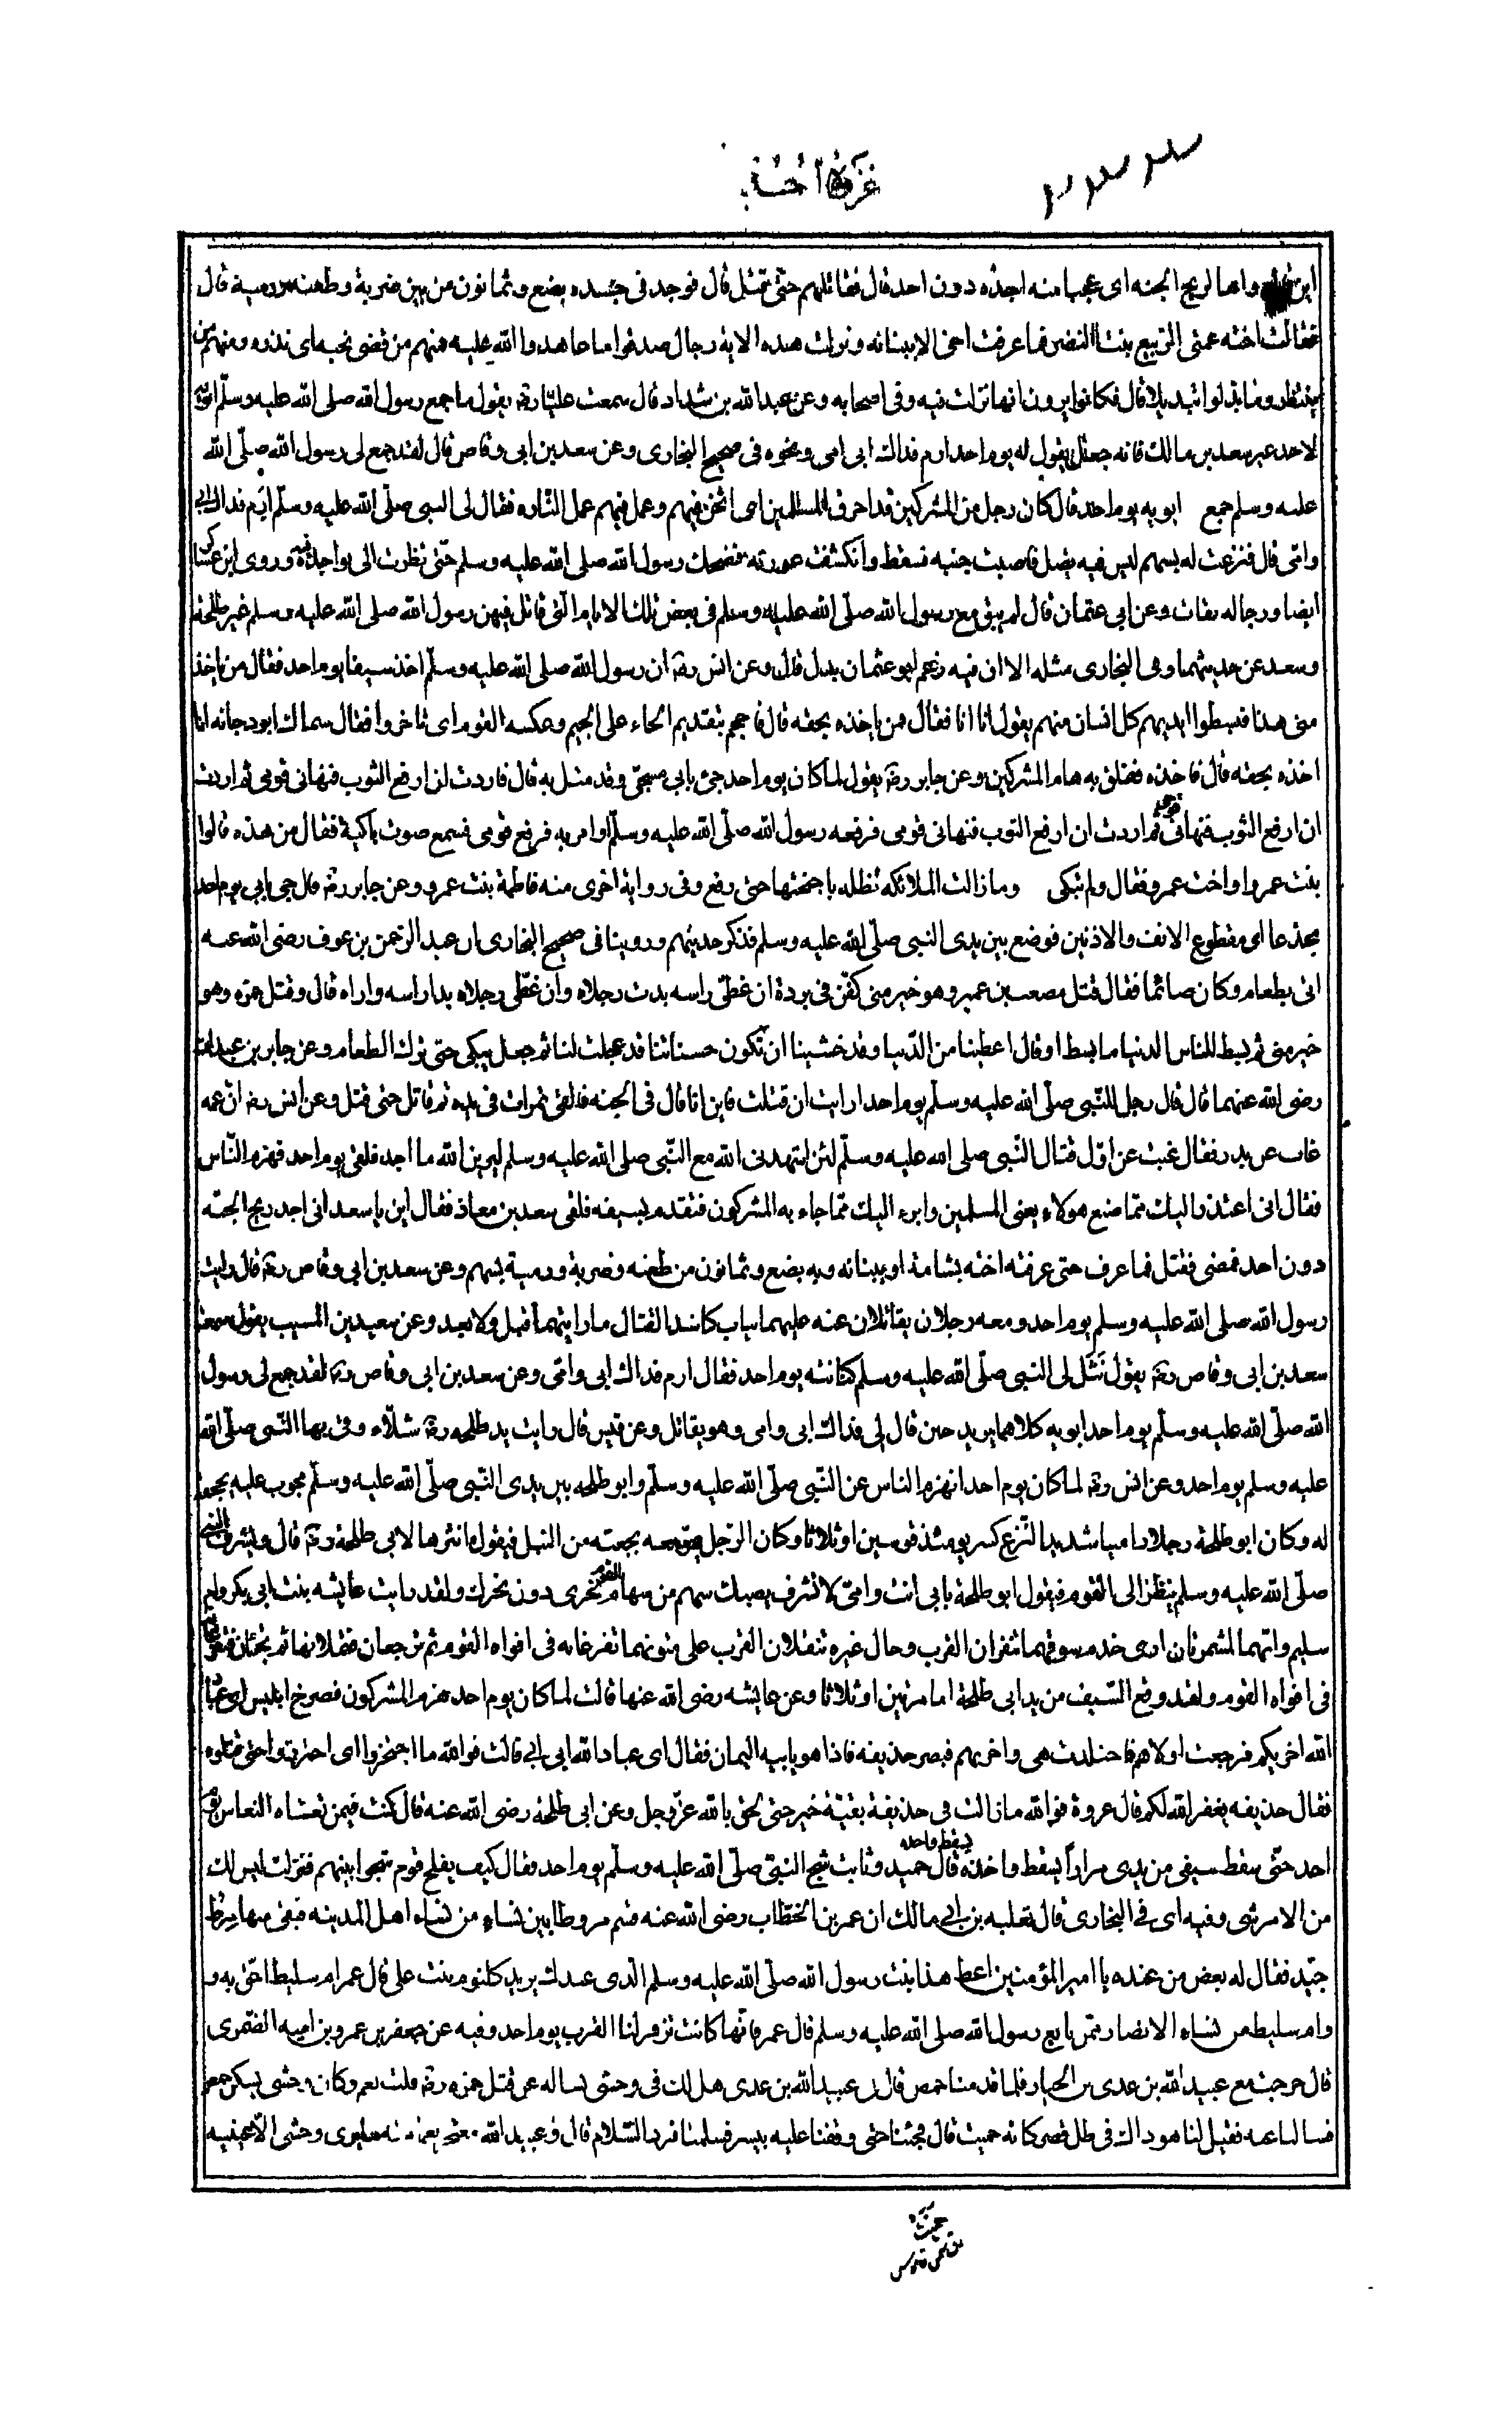 غزوة أحد
اين واها لريح الجنه اى عجبا منه اجده دون احد قال فقاتلهم حتى قتل قال فوجد فى جسده بضع وثمانون من بين ضربة وطعنه ورميه قال
فقالت اخته عمتى الربيع بنت النضر فما عرفت اخى الا ببنانه ونزلت هذه الاية رجال صدقوا ما عاهدوا الله عليه فمنهم من قضى نحبه اى نذره ومنهم من
ينتظر وما بدلوا تبديلا قال فكانوا يرون انها نزلت فيه وفى اصحابه وعن عبد الله بن شداد قال سمعت عليا رضه يقول ما جمع رسول الله صلى الله عليه وسلم ابويه
لاحد غير سعد بن مالك فانه جعل يقول له يوم احد ارم فداك ابى امى ونحوه فى صحيح البخارى وعن سعد بن ابى وقاص قال لقد جمع لى رسول الله صلى الله
عليه وسلم جمع ابويه يوم احد قال كان رجل من المشركين قد احرق المسلمين اى اثخن فيهم وعمل فيهم عمل النار فقال لى النبى صلى الله عليه وسلم ارم فداك ابى
وامى قال فنزعت له بسهم ليس فيه نصل فاصبت جنبه فسقط وانكشفت عورته فضحك رسول الله صلى الله عليه وسلم حتى نظرت الى نواجذه وروى ابن عساكر
ايضا ورجاله ثقات وعن ابى عثمان قال لم يبق مع رسول الله صلى الله عليه وسلم فى بعض تلك الايام التى قاتل فيهن رسول الله صلى الله عليه وسلم غير طلحة
وسعد عن حديثهما وفى البخارى مثله الا ان فيه زعم ابو عثمان بدل قال وعن انس رضه ان رسول الله صلى الله عليه وسلم اخذ سيفا يوم احد فقال من ياخذ
منى هذا فبسطوا ايديهم كل انسان منهم يقول انا انا فقال من ياخذه بحقه قال فاحجم بتقديم الحاء على الجيم وعكسه القوم اى تاخروا فقال سماك ابو دجانه انا
اخذه بحقه قال فاخذه ففلق به هام المشركين وعن جابر رضه يقول لما كان يوم احد جئ بابى مسجى وقد مثل به قال فاردت ان ارفع الثوب فنهانى قومى ثم اردت
ان ارفع الثوب فنهانى قومى ثم اردت ان ارفع الثوب فنهانى قومى فرفعه رسول الله صلى الله عليه وسلم او امر به فرفع قومى فسمع صوت باكية فقال من هذه قالوا
بنت عمرو او اخت عمرو فقال ولم تبكى وما زالت الملائكه تظله باجنحتها حتى رفع وفى رواية اخرى منه فاطمة بنت عمرو وعن جابر رضه قال جى بابى يوم احد
مجدعا اى مقطوع الانف والاذنين فوضع بين يدى النبى صلى الله عليه وسلم فذكر حديثهم وروينا فى صحيح البخارى ان عبد الرحمن بن عوف رضى الله عنه
اتى بطعام وكان صائما فقال قتل مصعب بن عمير وهو خير منى كفن فى بردة ان غطى راسه بدت رجلاه وان غطى رجلاه بدا راسه واراه قال وقتل حمزه وهو
خير منى ثم بسط للناس الدنيا ما بسط او قال اعطينا من الدنيا وقد خشينا ان تكون حسناتنا قد عجلت لنا ثم جعل يبكى حتى ترك الطعام وعن جابر بن عبد الله
رضى الله عنهما قال قال رجل للنبى صلى الله عليه وسلم يوم احد ارايت ان قتلت فاين انا قال فى الجنه فالقى تمرات فى يده ثم قاتل حتى قتل وعن انس رضه ان عمه
غاب عن بدر فقال غبت عن اول قتال النبى صلى الله عليه وسلم لئن اشهدنى الله مع النبى صلى الله عليه وسلم ليرين الله ما اجد فلقى يوم احد فهزم الناس
فقال انى اعتذر اليك مما صنع هولاء يعنى المسلمين وابرء اليك مما جاء به المشركون فتقدم بسيفه فلقى سعد بن معاذ فقال اين يا سعد انى اجد ريح الجنه
دون احد فمضى فقتل فما عرف حتى عرفته اخته بشامة او ببنانه وبه بضع وثمانون من طعنه وضربة ورمية بسهم وعن سعد بن ابى وقاص رضه قال رايت
رسول الله صلى الله عليه وسلم يوم احد ومعه رجلان يقاتلان عنه عليهما ثياب كاشد القتال ما رايتهما قبل ولا بعد وعن سعيد بن المسيب يقول سمعت
سعد بن ابى وقاص رضه يقول نثل لى النبى صلى الله عليه وسلم كنانته يوم احد فقال ارم فداك ابى وامى وعن سعد بن ابى وقاص رضه لقد جمع لى رسول
الله صلى الله عليه وسلم يوم احد ابويه كلاهما يريد حين قال لى فداك ابى وامى وهو يقاتل وعن قيس قال رايت يد طلحه رضه شلاء وقى بها النبى صلى الله
عليه وسلم يوم احد وعن انس رضه لما كان يوم احد انهزم الناس عن النبى صلى الله عليه وسلم وابو طلحه بين يدى النبى صلى الله عليه وسلم مجوب عليه بحجفة
له وكان ابو طلحة رجلا راميا شديد النزع كسر يومئذ قوسين او ثلاثا وكان الرجل يمر معه بجعبته من النبل فيقول انثرها لابى طلحة رضه قال ويشرف النبى
صلى الله عليه وسلم ينظر الى القوم فيقول ابو طلحة بابى انت وامى لا تشرف يصبك سهم من سهام القوم نحرى دون نحرك ولقد رايت عايشه بنت ابى بكر وام
سليم وانهما لمشمرتان ارى خدم سوقهما تنقزان القرب وحال غيره تنقلان القرب على متونهما تفرغانه فى افواه القوم ثم ترجعان فتملانها ثم تجيئان فتفرغانه
فى افواه القوم ولقد وقع السيف من يد ابى طلحة اما مرتين او ثلاثا وعن عايشه رضى الله عنها قالت لما كان يوم احد هزم المشركون فصرخ ابليس اى عباد
الله اخريكم فرجعت اولاهم فاجتلدت هى واخريهم فبصر حذيفه فاذا هو بابيه اليمان فقال اى عباد الله ابى ابى قالت فوالله ما احتجزوا اى احترزوا حتى قتلوه
فقال حذيفه يغفر الله لكم قال عروة فوالله ما زالت فى حذيفة بقية خير حتى لحق بالله عز وجل وعن ابى طلحة رضى الله عنه قال كنت فيمن تغشاه النعاس يوم
احد حتى سقط سيفى من يدى مرارا يسقط واخذه يسقط واخذه قال حميد وثابت شج النبى صلى الله عليه وسلم يوم احد فقال كيف يفلح قوم شجوا نبيهم فنزلت ليس لك
من الامر شى وفيه اى فى البخارى قال ثعلبه بن ابى مالك ان عمر بن الخطاب رضى الله عنه قسم مروطا بين نساء من نساء اهل المدينه فبقى منها مرط
جيد فقال له بعض من عنده يا امير المؤمنين اعط هذا بنت رسول الله صلى الله عليه وسلم الذى عندك يريد كلثوم بنت على قال عمر ام سليط احق به و
وام سليط من نساء الانصار ممن بايع رسول الله صلى الله عليه وسلم قال عمر فانها كانت تزفر لنا القرب يوم احد وفيه عن جعفر بن عمرو بن اميه الضمرى
قال خرجت مع عبيد الله بن عدى بن الخيار فلما قدمنا حمص قال لى عبيد الله بن عدى هل لك فى وحشى نساله عن قتل حمزه رضه قلت نعم وكان وحشى يسكن حمص
فسالنا عنه فقيل لنا هو ذاك فى ظل قصره كانه حميت قال فجئنا حتى وقفنا عليه بيسر فسلمنا فرد السلام قال وعبيد الله معتجر بعمامته ما يرى وحشى الا عينيه